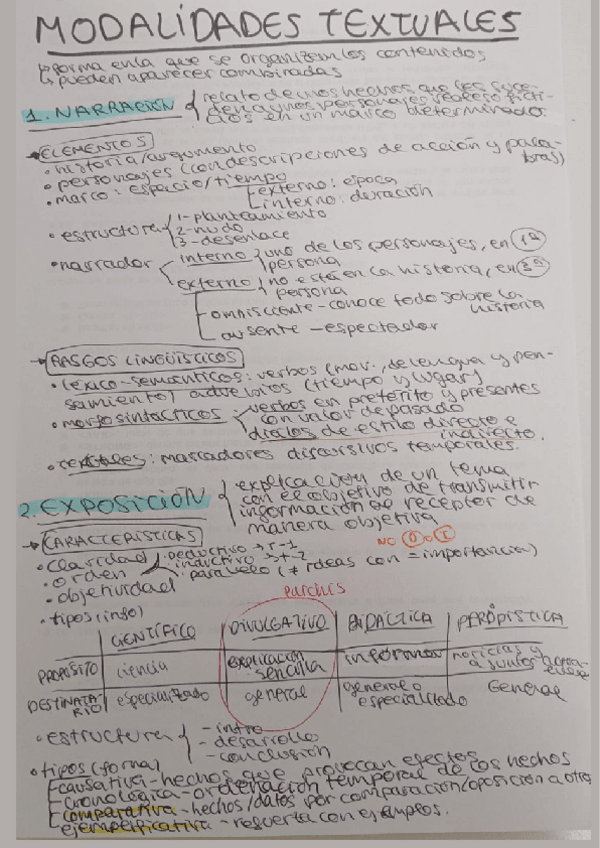 MODALIDADES TEXTUALES
forma en la que se organizan los contenidos
↳ pueden aparecer combinadas
1. NARRACIÓN { relato de unos hechos que les suce-
den a unos personajes reales o ficti-
cios en un marco determinado.
→ ELEMENTOS
• historia/argumento
• personajes (con descripciones de acción y palabras)
• marco: espacio/tiempo
externo: época
interno: duración
• estructura { 1-planteamiento
2-nudo
3-desenlace
• narrador interno } uno de los personajes, en 1ª
persona
externo } no está en la historia, en 3ª
persona
omnisciente - conoce todo sobre la
historia
ausente - espectador
→ RASGOS LINGÜÍSTICOS
• léxico-semánticos: verbos (mov., de lengua y pen-
samiento) adverbios (tiempo y lugar)
• morfosintácticos: verbos en pretérito y presentes
con valor de pasado
diálos de estilo directo e
indirecto.
• textuales: marcadores discursivos temporales.
2. EXPOSICIÓN { explicación de un tema
con el objetivo de transmitir
información al receptor de
manera objetiva
→ CARACTERÍSTICAS
• claridad
• orden
• objetividad
deductivo → r-1
inductivo
paralelo (≠ ideas con = importancia)
NO
• tipos (info)
CIENTÍFICO DIVULGATIVO DIDÁCTICA
PROPÓSITO ciencia explicación sencilla informar noticias y asuntos
DESTINATARIO especializado general general o especializado General
• estructura { - intro
- desarrollo
- conclusión
• tipos (forma)
causativa - hechos que provocan efectos
cronológica - ordenación temporal de los hechos
comparativa - hechos/datos por comparación/oposición a otro
ejemplificativa - resuerta con ejemplos.